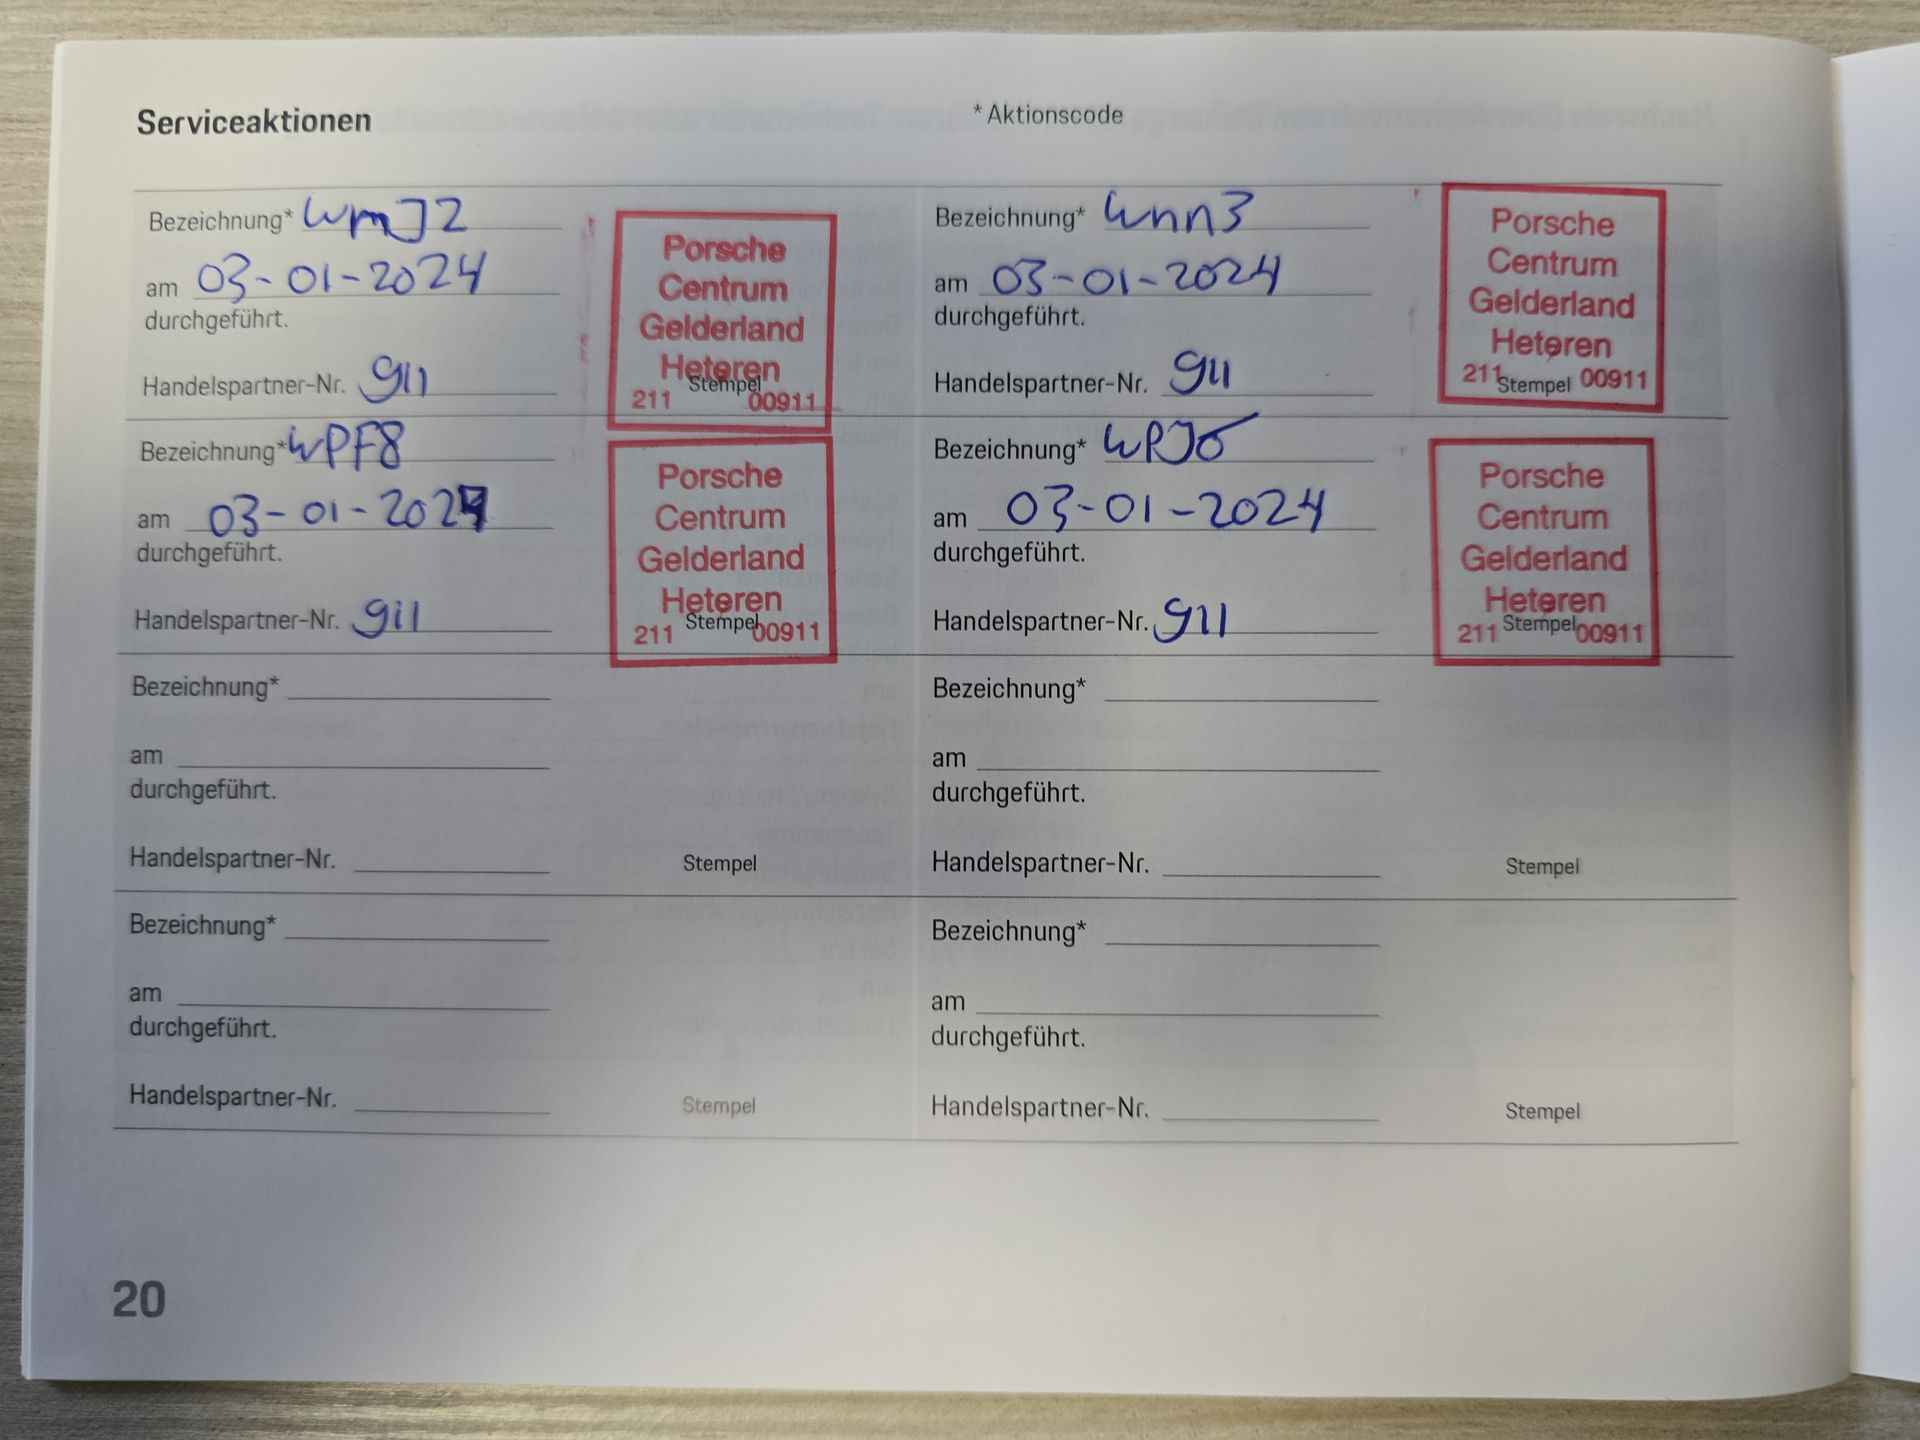 Serviceaktionen
* Aktionscode
Bezeichnung* WmJ2
am 03-01-2024
durchgeführt.
Handelspartner-Nr. 911
Porsche
Centrum
Gelderland
Heteren
Stempel
211 00911
Bezeichnung* Wnn3
am 03-01-2024
durchgeführt.
Handelspartner-Nr. 911
Porsche
Centrum
Gelderland
Heteren
211 Stempel 00911
Bezeichnung* WPF8
am 03-01-2024
durchgeführt.
Handelspartner-Nr. 911
Porsche
Centrum
Gelderland
Heteren
211 Stempel 00911
Bezeichnung* WPJ6
am 03-01-2024
durchgeführt.
Handelspartner-Nr. 911
Porsche
Centrum
Gelderland
Heteren
211 Stempel 00911
Bezeichnung*
am
durchgeführt.
Handelspartner-Nr.
Stempel
Bezeichnung*
am
durchgeführt.
Handelspartner-Nr.
Stempel
Bezeichnung*
am
durchgeführt.
Handelspartner-Nr.
Stempel
Bezeichnung*
am
durchgeführt.
Handelspartner-Nr.
Stempel
20